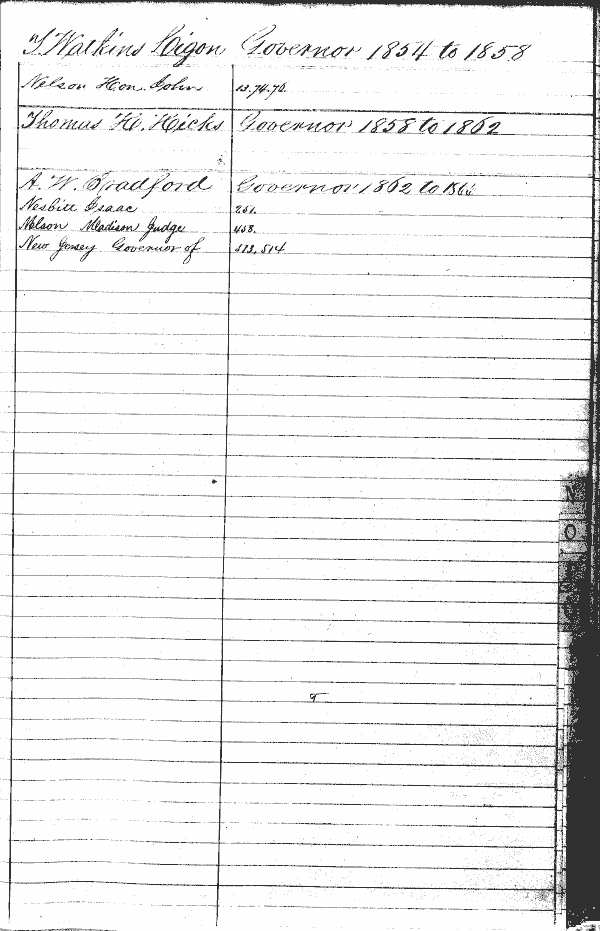 T Watkins Ligon Governor 1854 to 1858
Nelson Hon. John 13.74.76.
Thomas H. Hicks Governor 1858 to 1862
A. W. Bradford Governor 1862 to 1866
Nesbitt Isaac 251.
Nelson Madison Judge 458.
New Jersey Governor of 514
N
O